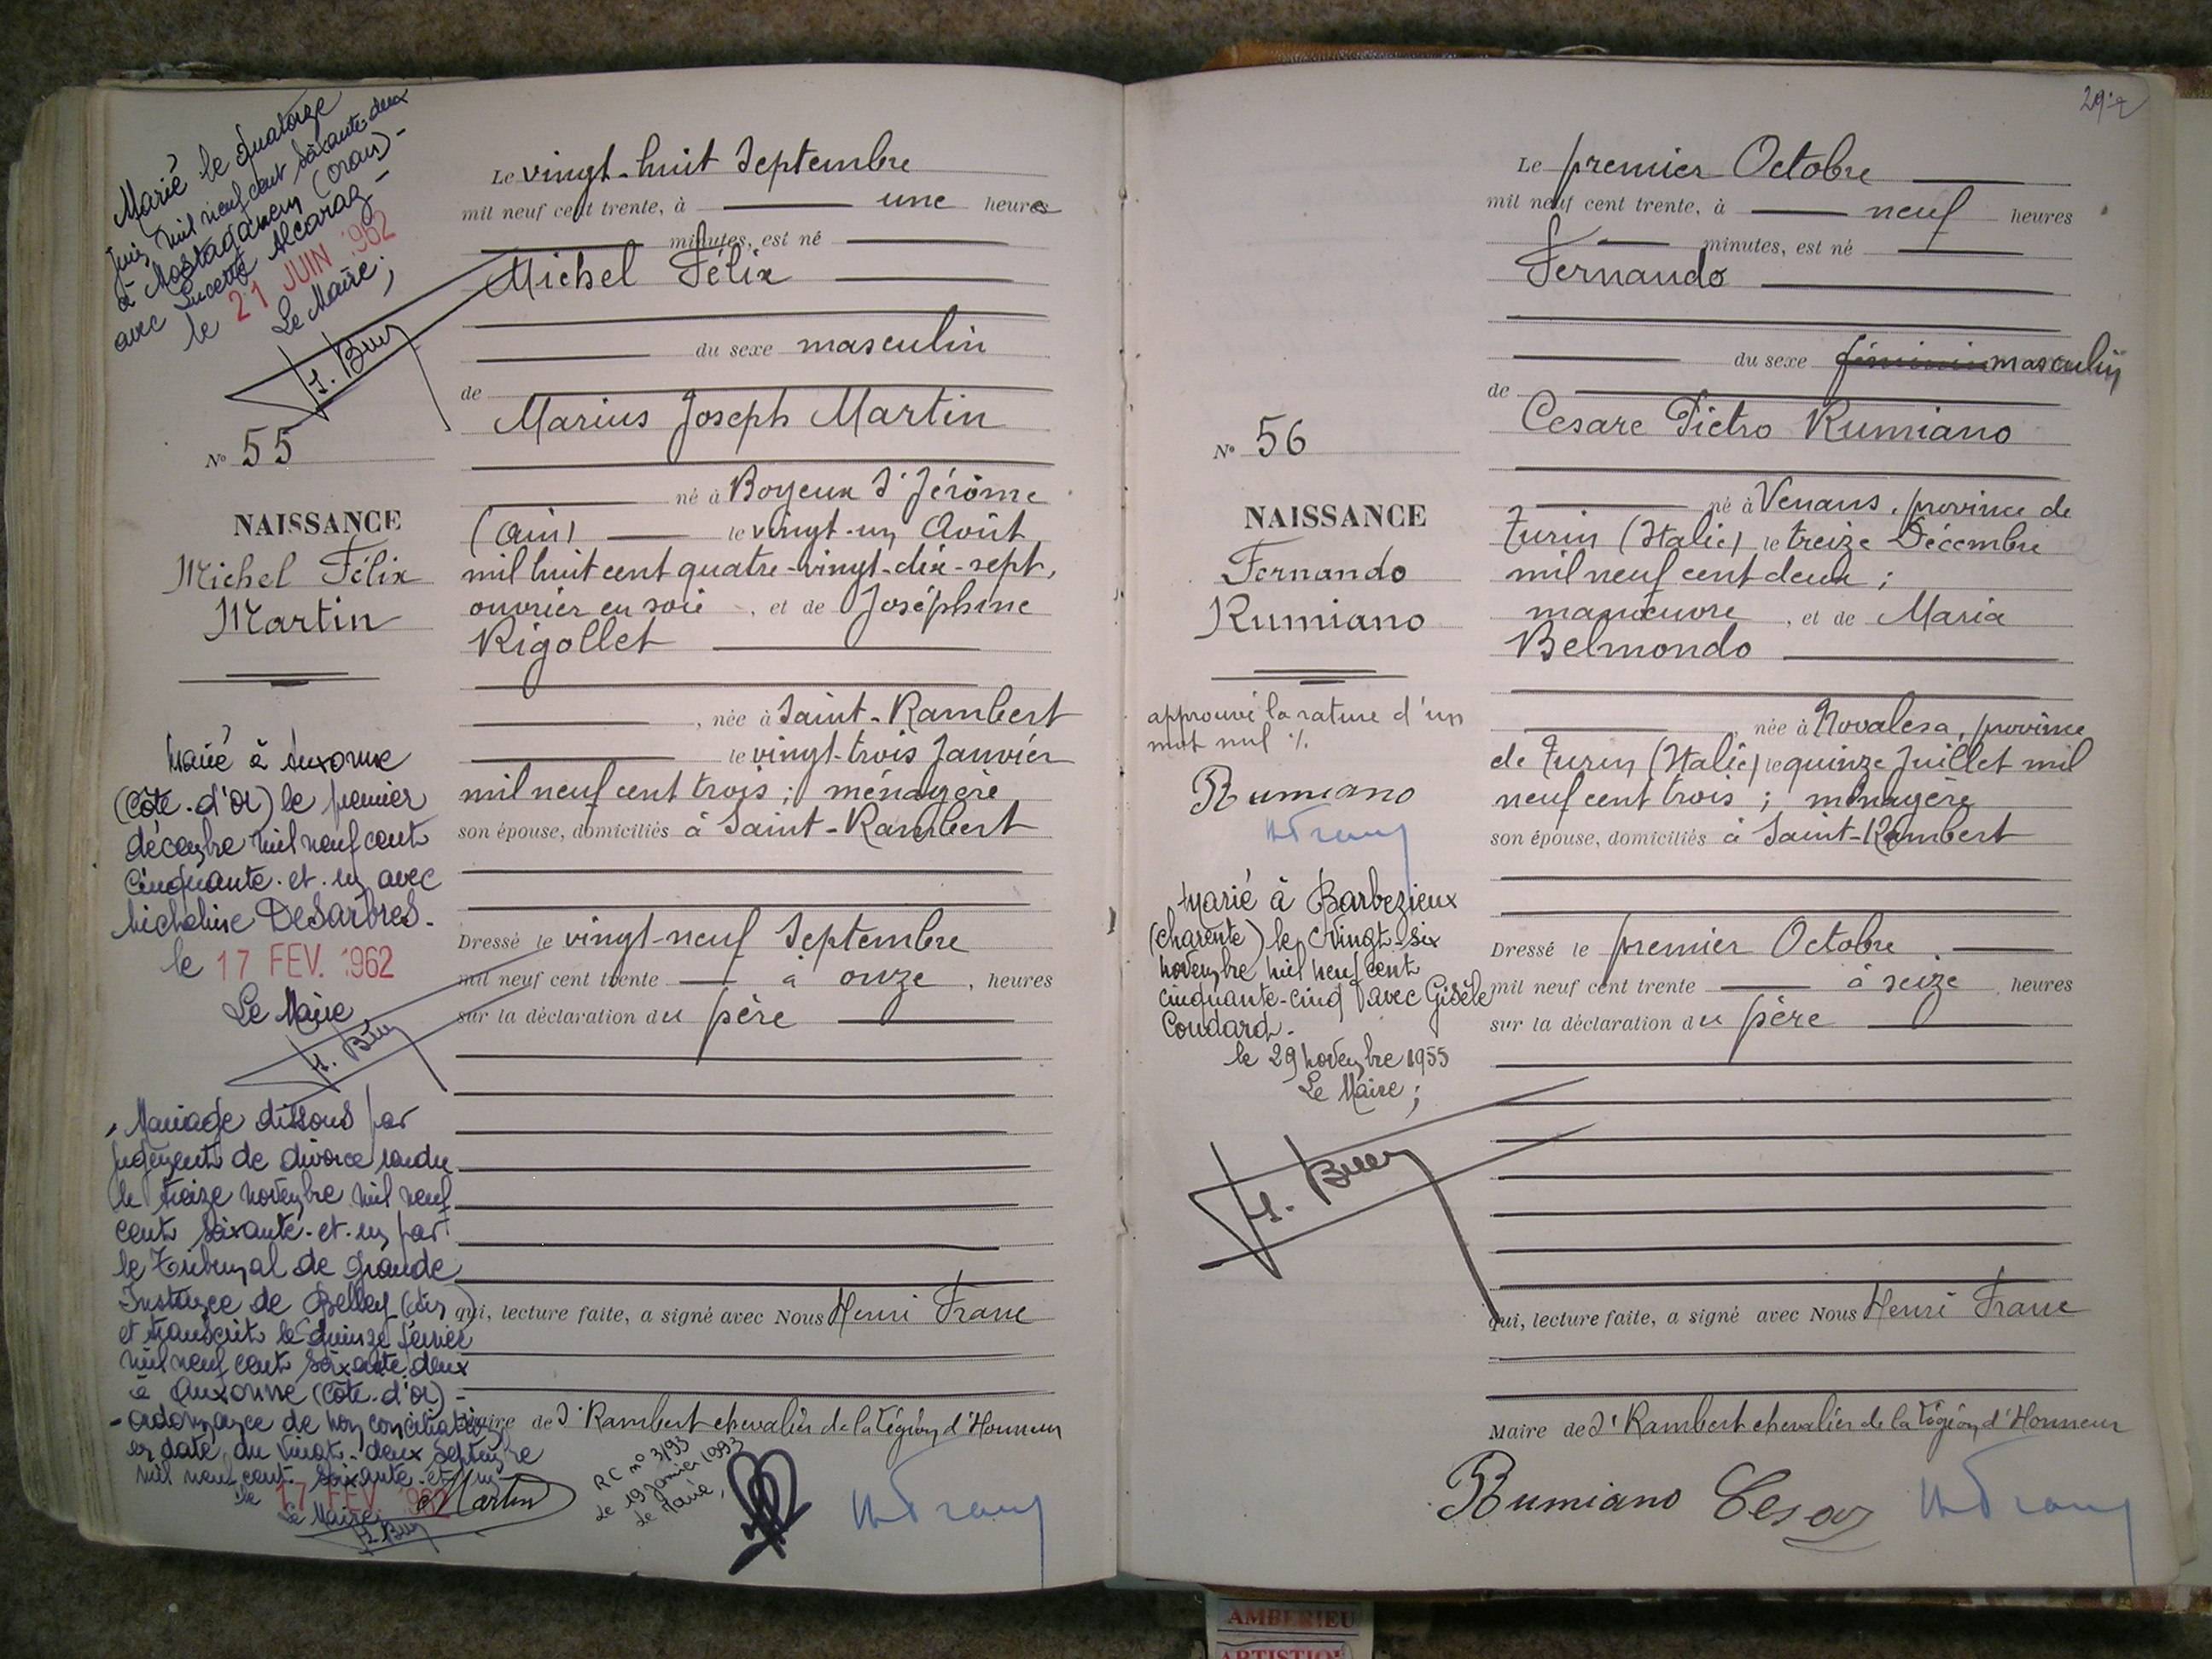 Marié le quatorze
juin mil neuf cent soixante deux
à Mostaganem (Oran) -
avec Lucette Alcaraz -
le 21 JUIN 1962
Le Maire;
H. Buy
N° 55
NAISSANCE
Michel Félix
Martin
Marié à Auxonne
(Côte-d'Or) le premier
décembre mil neuf cent
cinquante-et-un avec
Micheline Desarbres.
le 17 FEV. 1962
Le Maire
Mariage dissous par
jugement de divorce rendu
le treize novembre mil neuf
cent soixante-et-un par
le Tribunal de Grande
Instance de Belley (Ain)
et transcrit le quinze février
mil neuf cent soixante deux
à Auxonne (Côte-d'Or) -
- ordonnance de non conciliation
en date du vingt-deux septembre
mil neuf cent soixante-et-un-
le 17 FEV. 1962
Le Maire
Le vingt-huit Septembre
mil neuf cent trente, à une heures
minutes, est né
Michel Félix
du sexe masculin
de
Marius Joseph Martin
né à Boyeux St Jérôme
(Ain) le vingt-un Août
mil huit cent quatre-vingt-dix-sept,
ouvrier en soie, et de Joséphine
Rigollet
, née à Saint-Rambert
le vingt-trois Janvier
mil neuf cent trois ; ménagère
son épouse, domiciliés à Saint-Rambert
Dressé le vingt-neuf Septembre
mil neuf cent trente à onze, heures
sur la déclaration du père
qui, lecture faite, a signé avec Nous Henri Franc
Maire de St Rambert chevalier de la Légion d'Honneur
Martin
RC n° 3/93
Le 19 Janvier 1993
Le Maire,
HFranc
29
Le premier Octobre
mil neuf cent trente, à neuf heures
minutes, est né
Fernando
du sexe féminin masculin
de
Cesare Pietro Rumiano
né à Venaus, province de
Turin (Italie) le treize Décembre
mil neuf cent deux ;
manœuvre, et de Maria
Belmondo
, née à Novalesa, province
de Turin (Italie) le quinze Juillet mil
neuf cent trois ; ménagère
son épouse, domiciliés à Saint-Rambert
Dressé le premier Octobre
mil neuf cent trente à seize heures
sur la déclaration du père
qui, lecture faite, a signé avec Nous Henri Franc
Maire de St Rambert chevalier de la Légion d'Honneur
Rumiano Cesare
HFranc
N° 56
NAISSANCE
Fernando
Rumiano
approuvé la rature d'un
mot nul %.
Rumiano
HFranc
Marié à Barbezieux
(Charente) le vingt-six
novembre mil neuf cent
cinquante-cinq avec Gisèle
Coudard.
le 29 novembre 1955
Le Maire;
H. Buy
AMBERIEU
ARTISTIQU